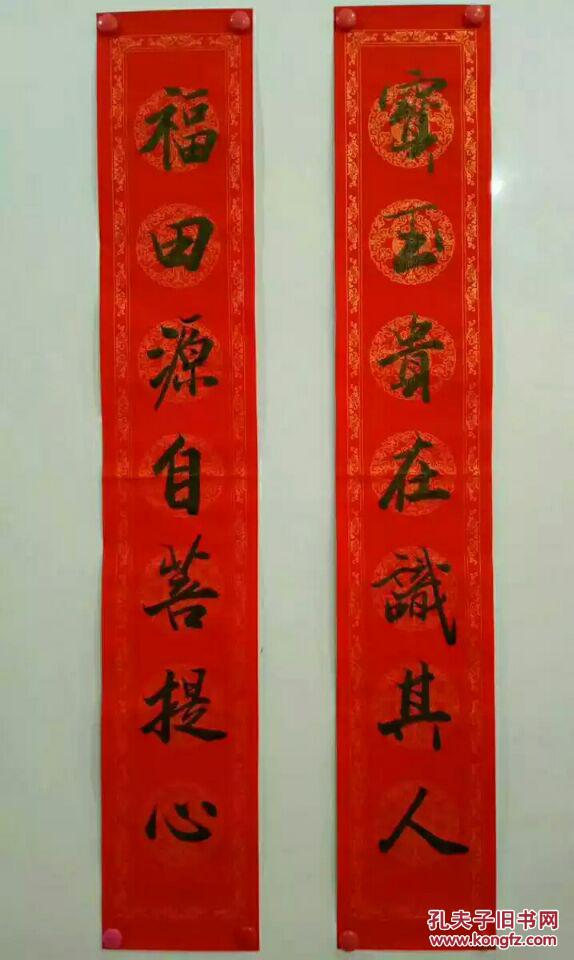 寶玉貴在識其人
福田源自菩提心
孔夫子旧书网
www.kongfz.com